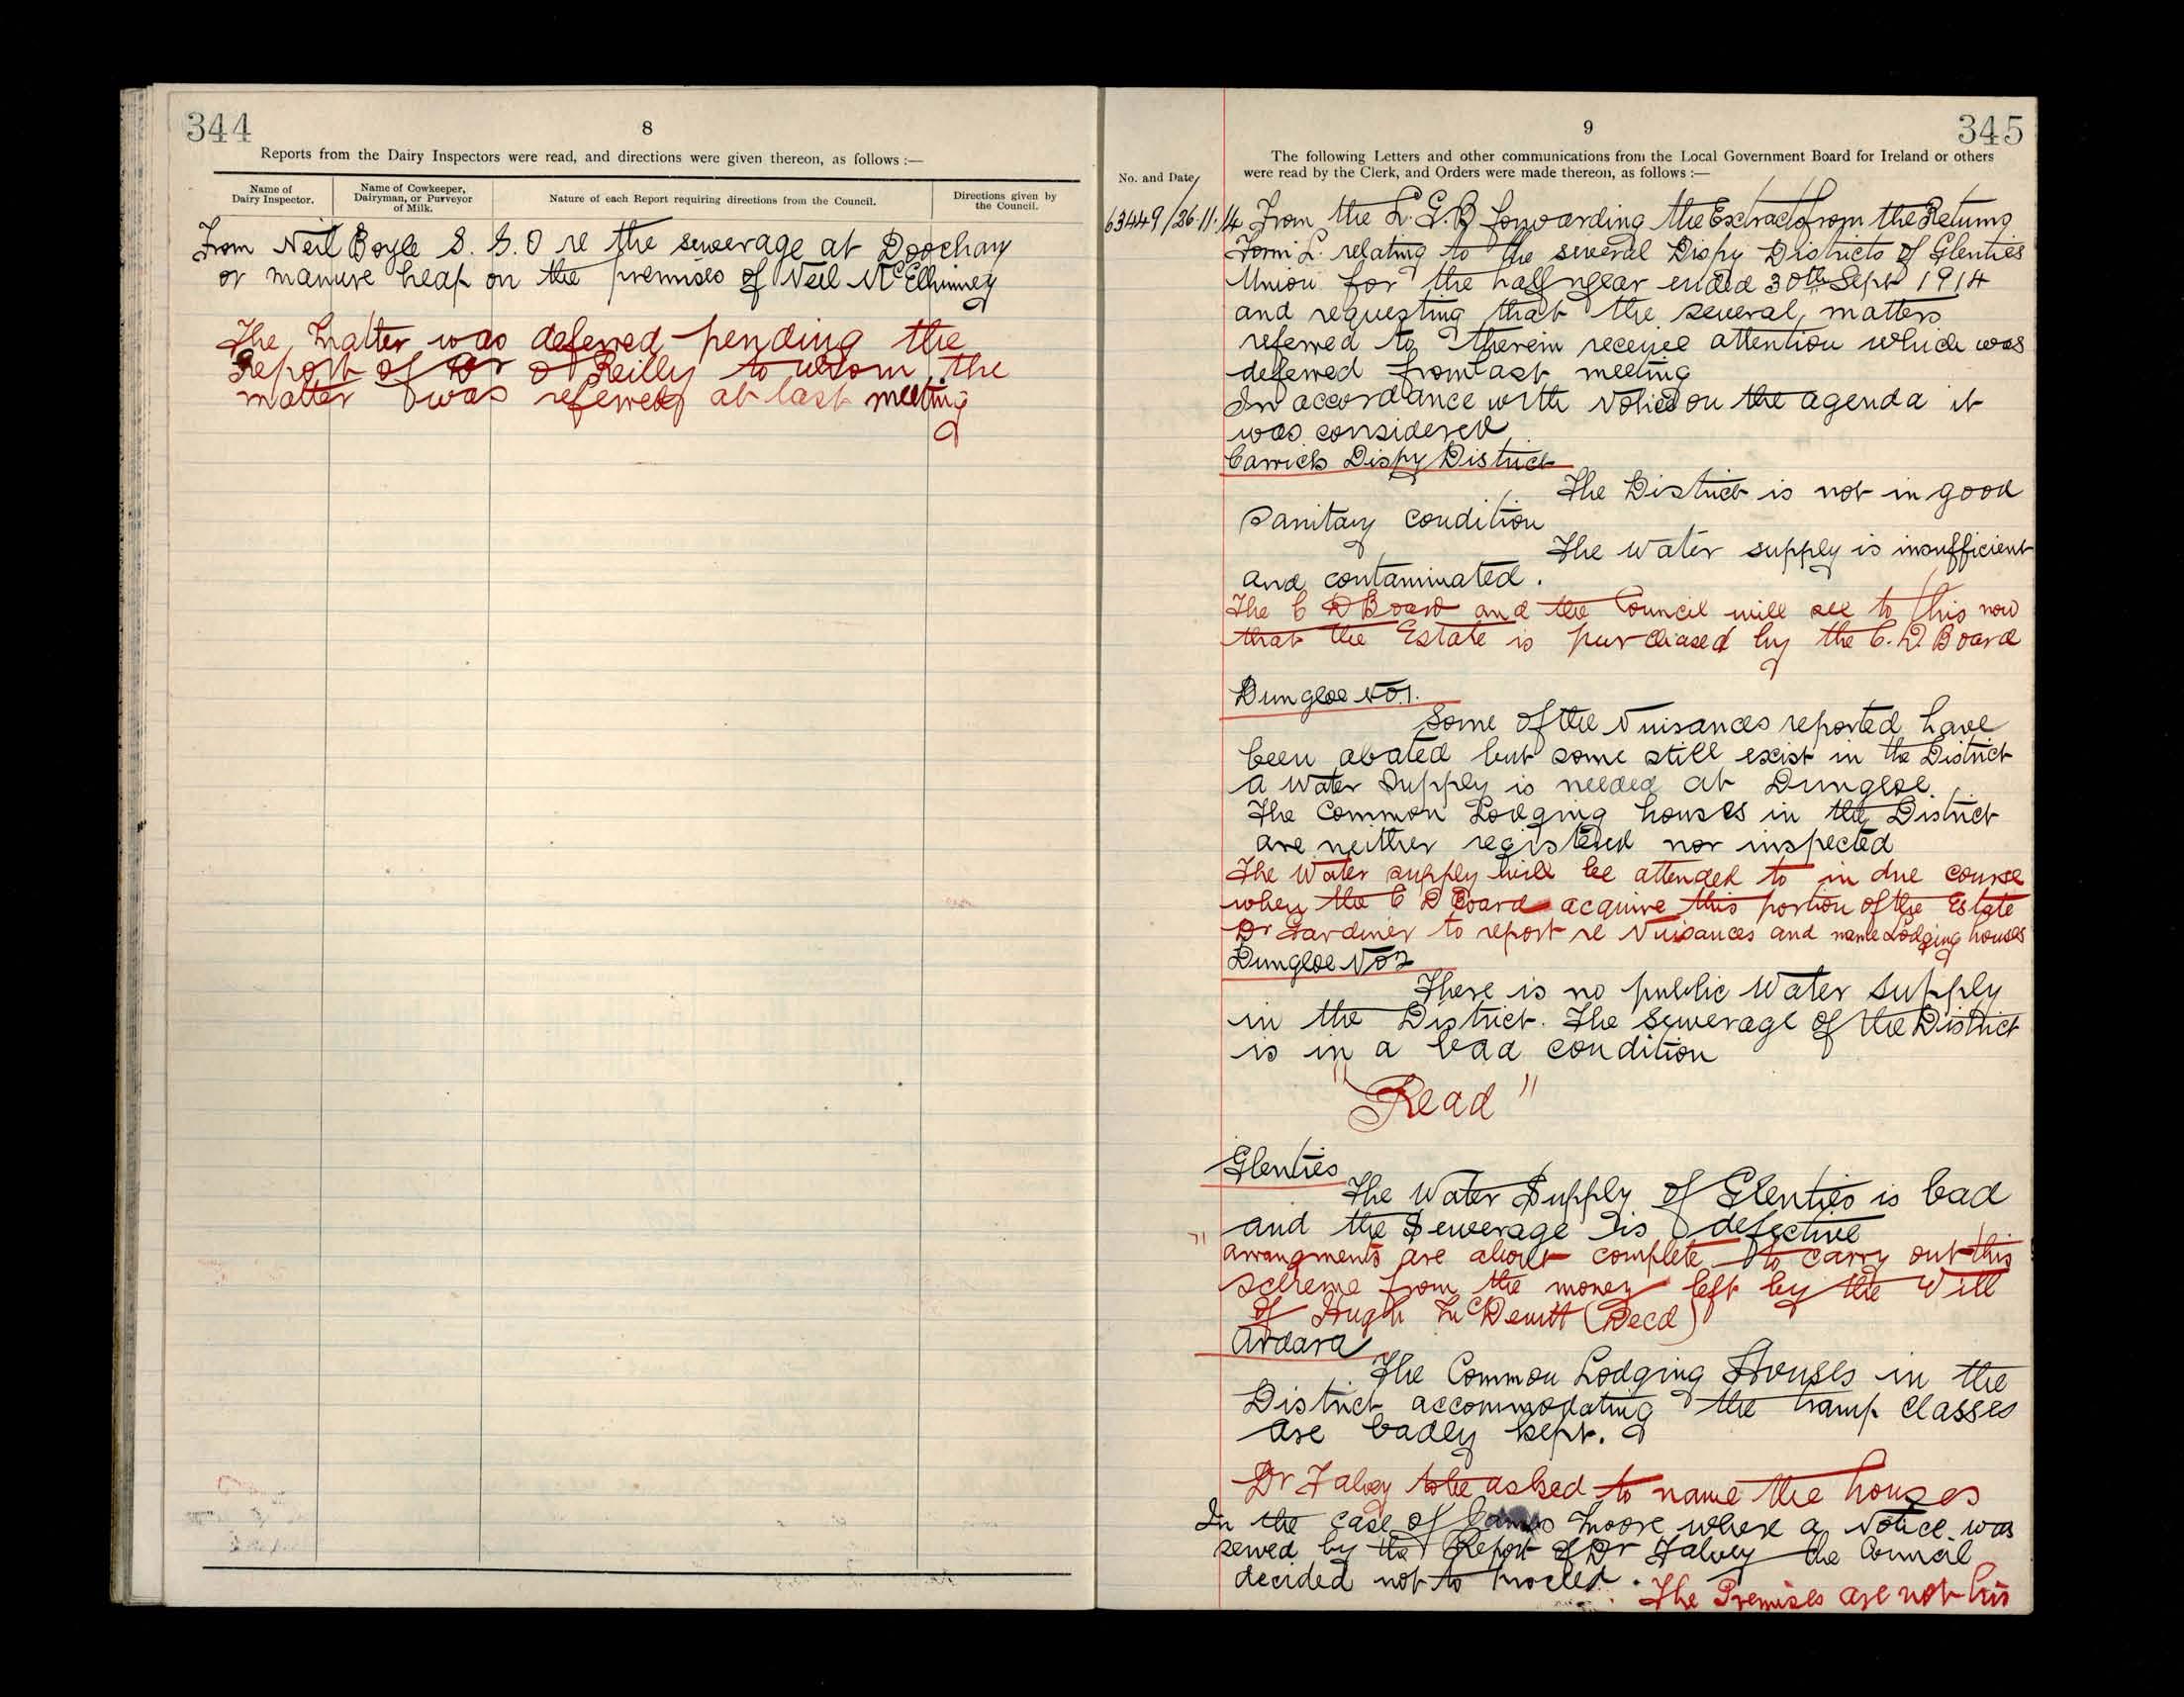 344
8
Reports from the Dairy Inspectors were read, and directions were given thereon, as follows :—
Name of Dairy Inspector.
Name of Cowkeeper, Dairyman, or Purveyor of Milk.
Nature of each Report requiring directions from the Council.
Directions given by the Council.
From Neil Boyle S. S. O re the sewerage at Doochary
or manure heap on the premises of Neil McElhinney
The matter was deferred pending the
Report of Dr O'Reilly to whom the
matter was referred at last meeting
9
345
The following Letters and other communications from the Local Government Board for Ireland or others
were read by the Clerk, and Orders were made thereon, as follows :—
No. and Date
63449/26.11.14 From the L. G. B forwarding the Extracts from the Returns
Form L. relating to the several Dispy Districts of Glenties
Union for the half year ended 30th Sept 1914
and requesting that the several matters
referred to therein receive attention which was
deferred from last meeting
In accordance with Notice on the agenda it
was considered
Carrick Dispy District
The District is not in good
Sanitary condition
The water supply is insufficient
and contaminated.
The C D Board and the Council will see to this now
that the Estate is purchased by the C. D. Board
Dungloe No. 1.
Some of the Nuisances reported have
been abated but some still exist in the District
a water supply is needed at Dungloe.
The Common Lodging houses in the District
are neither registered nor inspected
The Water supply will be attended to in due course
when the C D Board acquire this portion of the Estate
Dr Gardiner to report re Nuisances and name Lodging houses
Dungloe No 2
There is no public Water Supply
in the District. The Sewerage of the District
is in a bad condition
"Read"
Glenties
The Water Supply of Glenties is bad
and the Sewerage is defective
" arrangments are about complete to carry out this
scheme from the money left by the Will
of Hugh McDevitt (Decd)
Ardara
The Common Lodging Houses in the
District accommodating the tramp classes
are badly kept.
Dr Falvey to be asked to name the houses
In the case of James Moore where a Notice was
served by the Report of Dr Falvey the Council
decided not to proceed. The Premises are not his